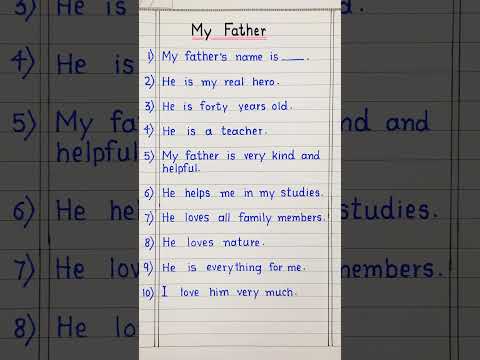 My Father
1) My father's name is ____.
2) He is my real hero.
3) He is forty years old.
4) He is a teacher.
5) My father is very kind and
helpful.
6) He helps me in my studies.
7) He loves all family members.
8) He loves nature.
9) He is everything for me.
10) I love him very much.